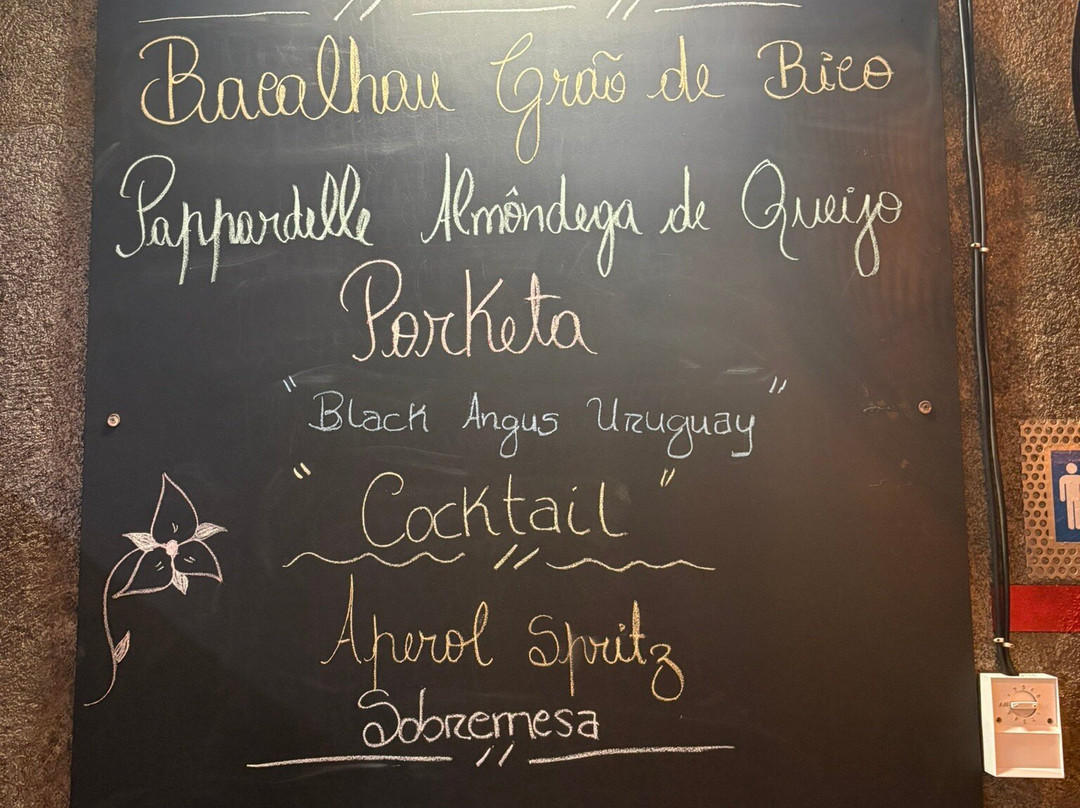 Bacalhau Grão de Bico
Pappardelle Almôndega de Queijo
PorKeta
"Black Angus Uruguay"
"Cocktail"
Aperol Spritz
Sobremesa